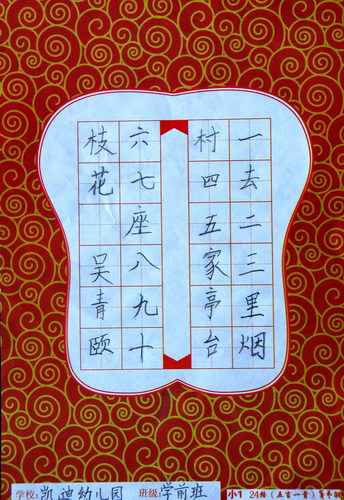 一去二三里烟
村四五家亭台
六七座八九十
枝花 吴青颐
学校:凯迪幼儿园 班级:学前班
小1 24格(五言一首)